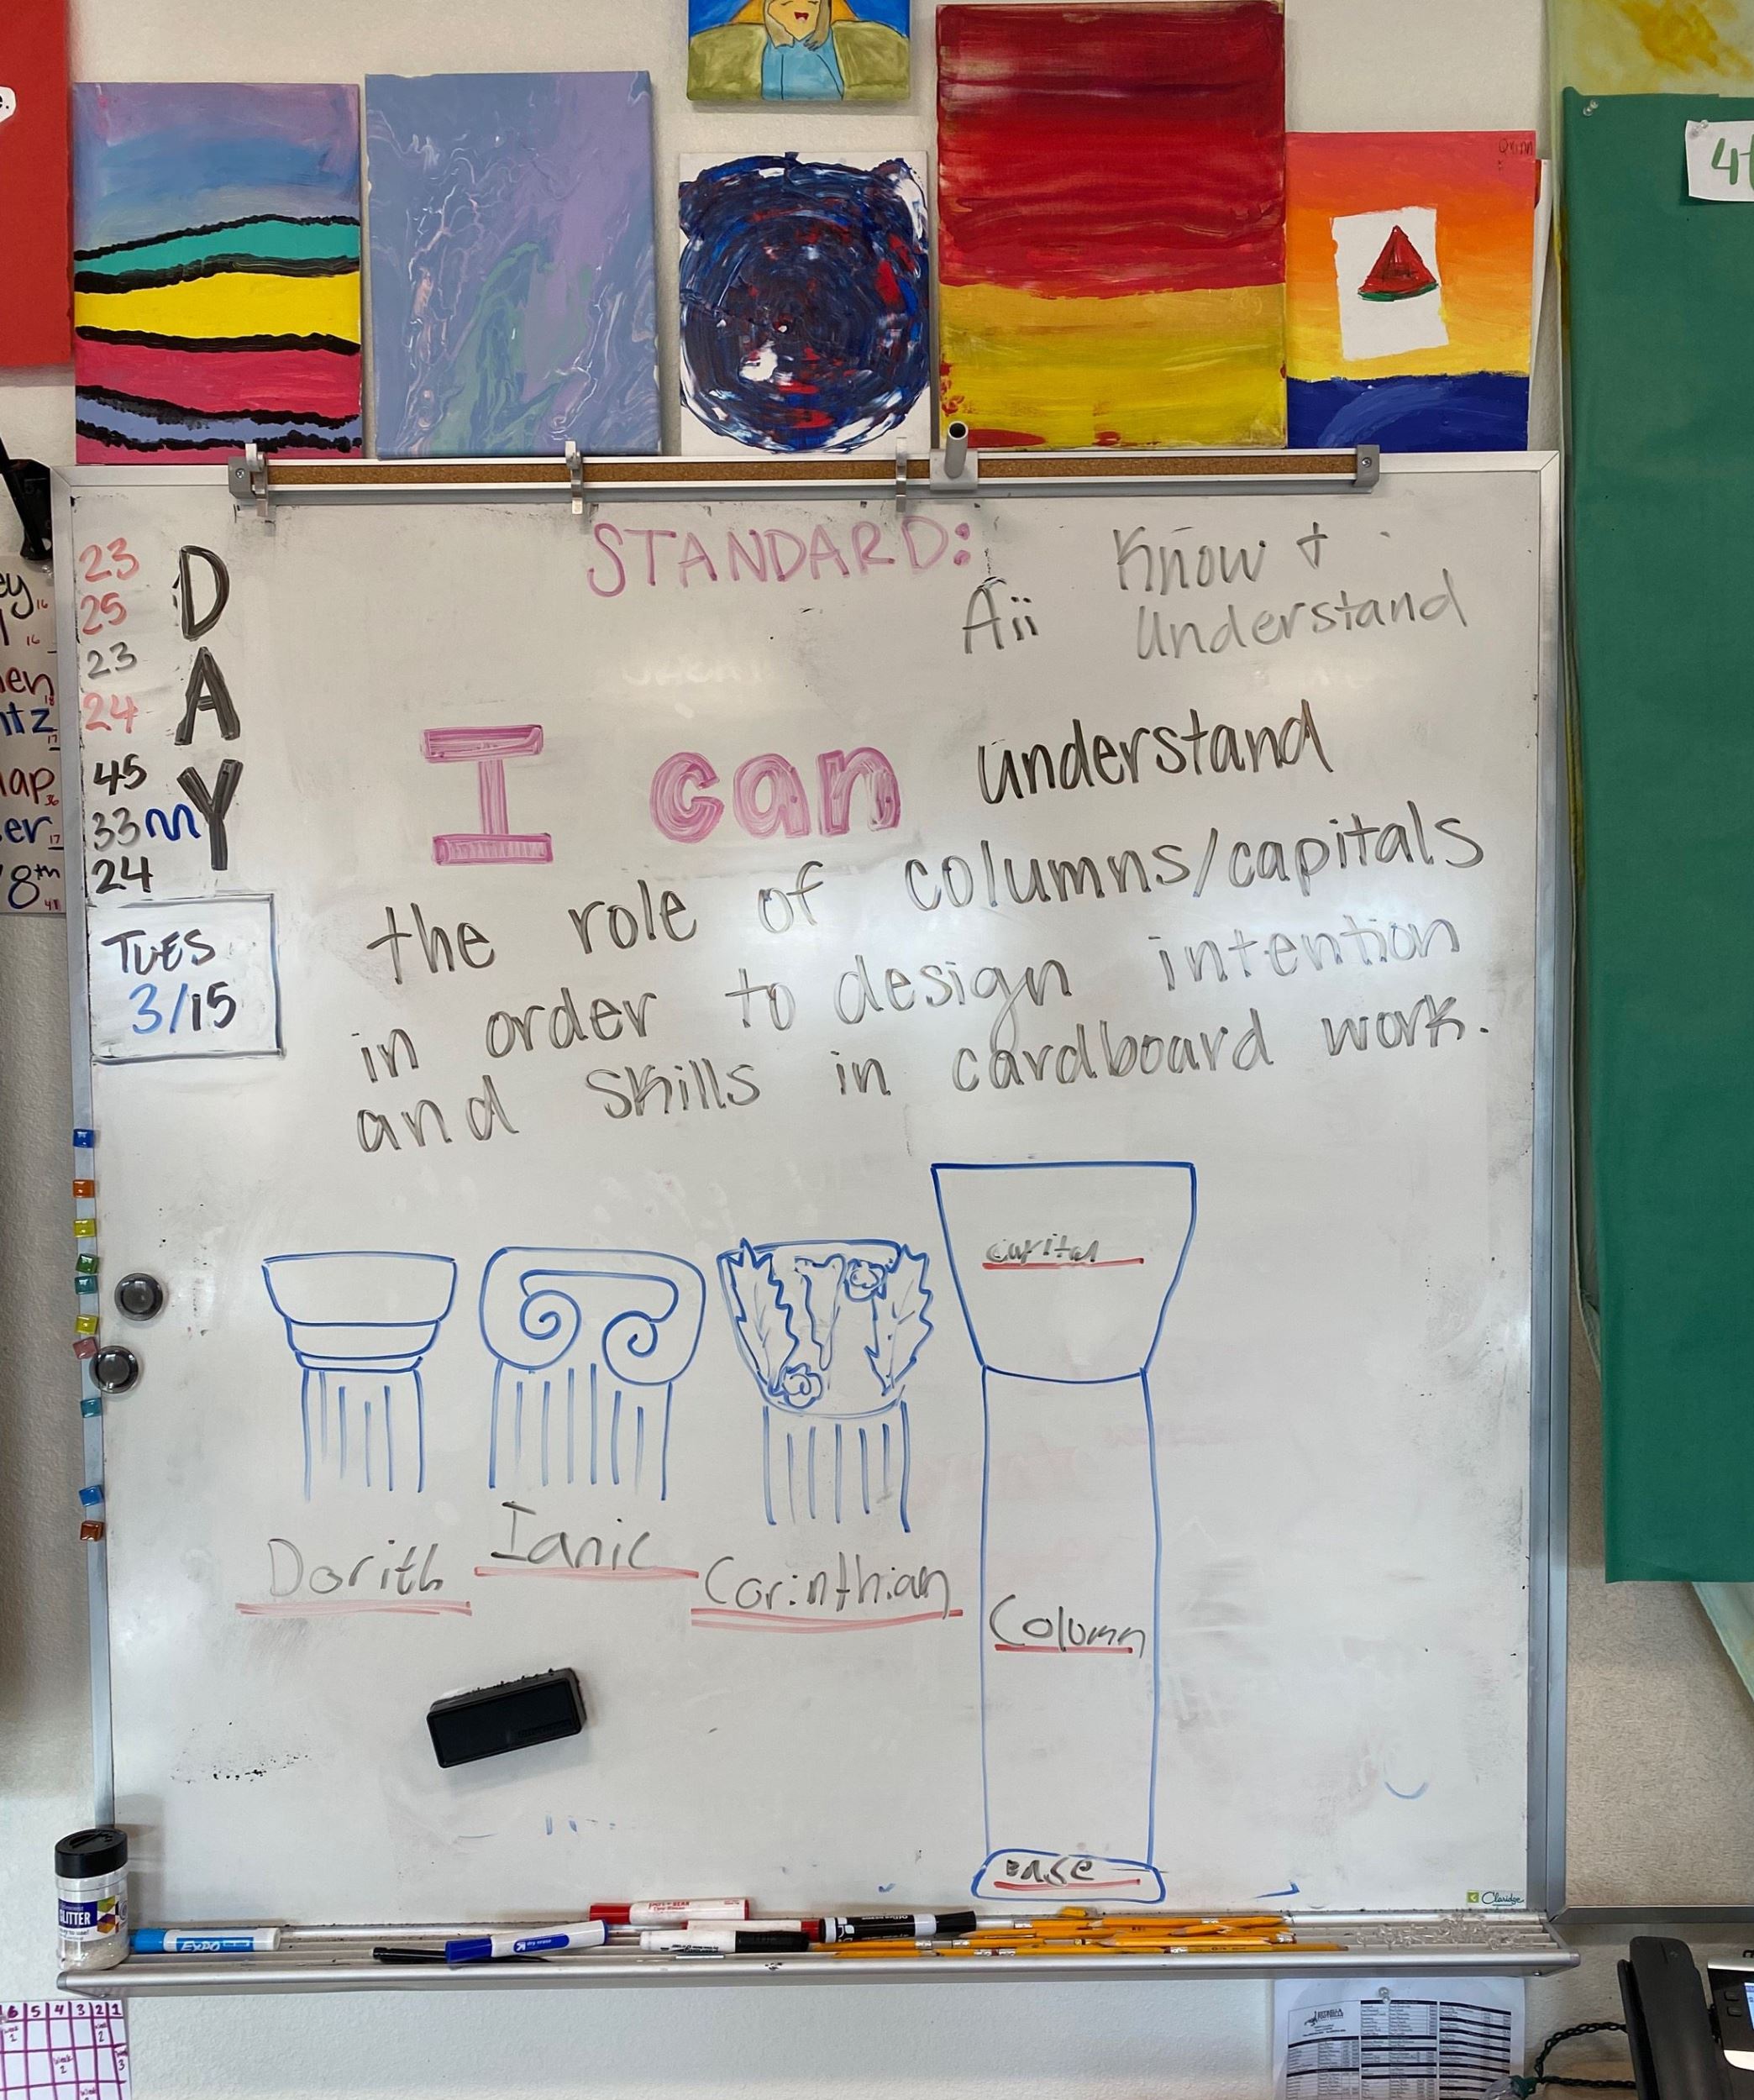 STANDARD:
Aii
Know +
Understand
23
25
23
24
45
33
24
DAY
TUES
3/15
I can understand
the role of columns/capitals
in order to design intention
and skills in cardboard work.
capital
Dorith
Ianic
Corinthian
Column
Base
Claridge
GLITTER
EXPO
Quinn
8th
6 5 4 3 2 1